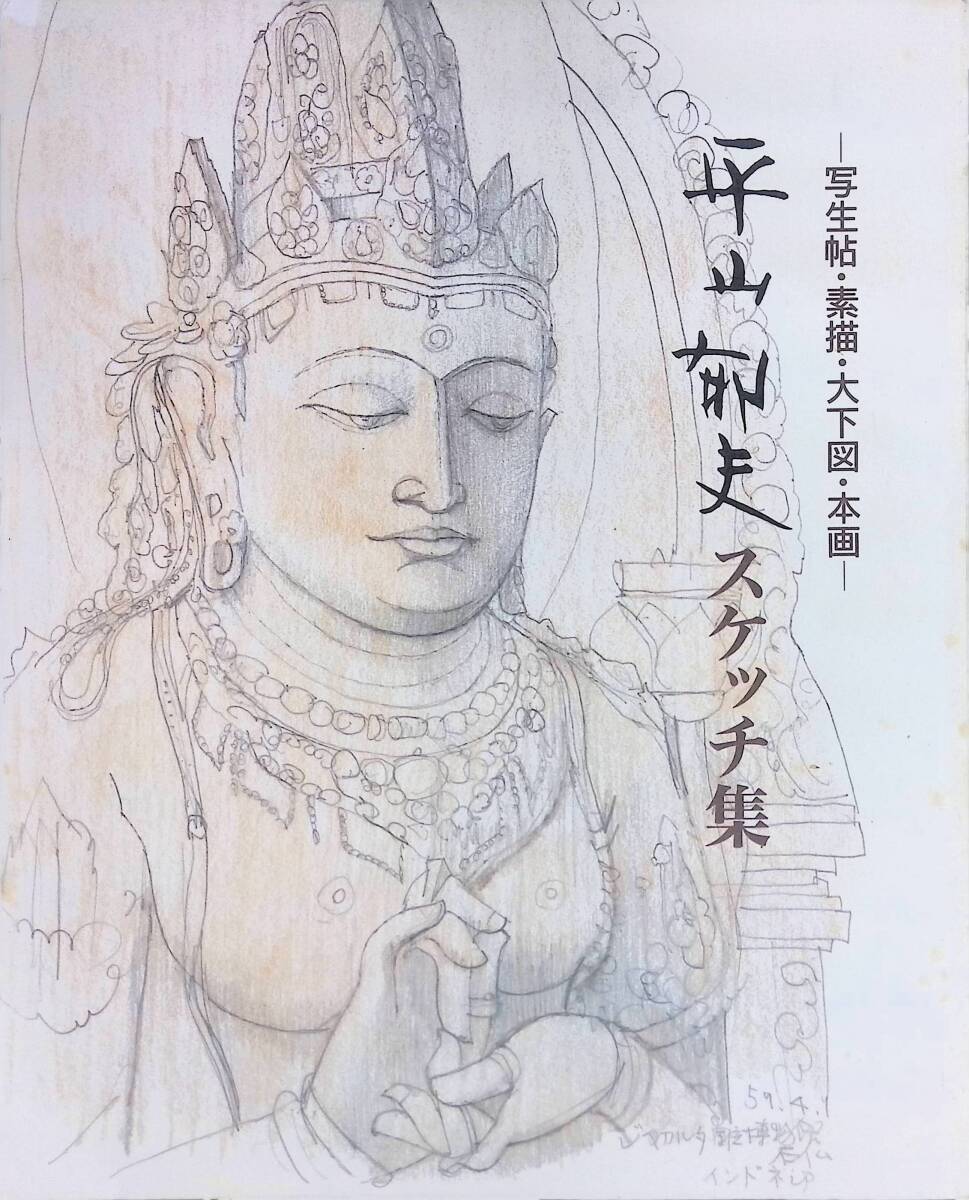 ―写生帖・素描・大下図・本画―
平山郁夫スケッチ集
59.4.1
ジャカルタ国立博物館
石仏
インドネシア